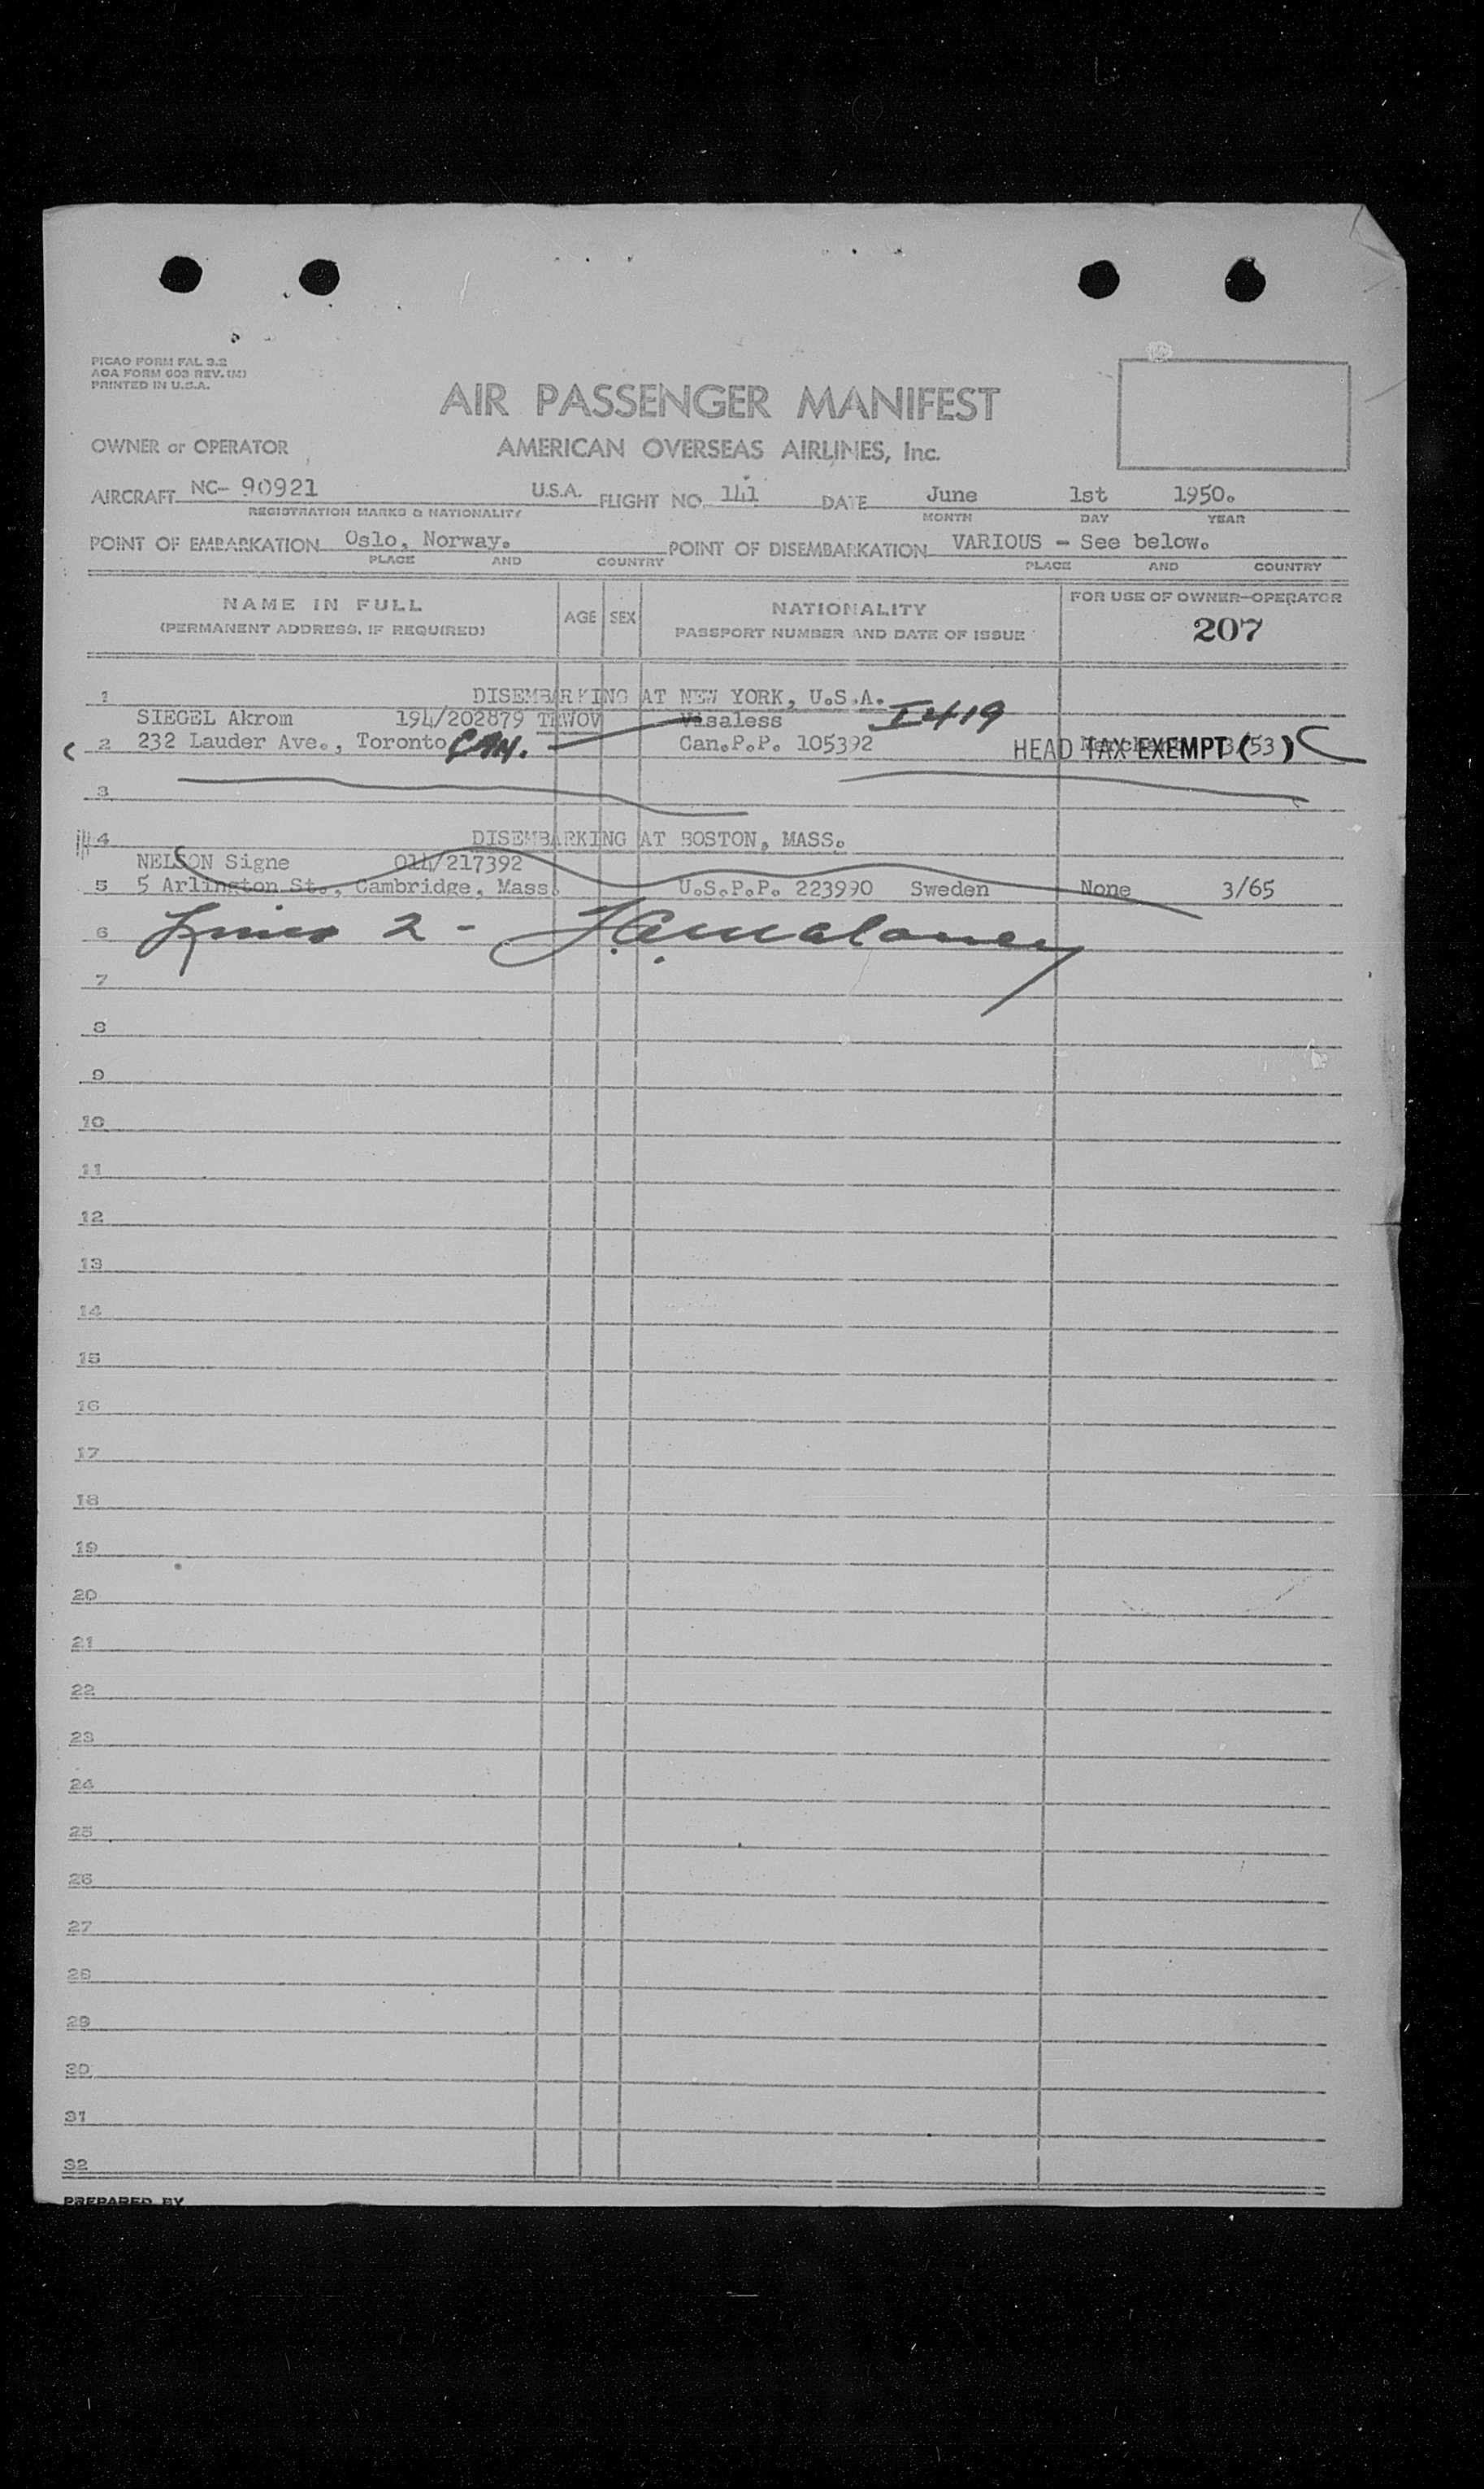 PICAO FORM FAL 3.2
AOA FORM 603 REV. (M)
PRINTED IN U.S.A.
AIR PASSENGER MANIFEST
OWNER or OPERATOR AMERICAN OVERSEAS AIRLINES, Inc.
AIRCRAFT NC- 90921 U.S.A. FLIGHT NO. 141 DATE June 1st 1950.
REGISTRATION MARKS & NATIONALITY MONTH DAY YEAR
POINT OF EMBARKATION Oslo, Norway. POINT OF DISEMBARKATION VARIOUS - See below.
PLACE AND COUNTRY PLACE AND COUNTRY
NAME IN FULL AGE SEX NATIONALITY FOR USE OF OWNER-OPERATOR
(PERMANENT ADDRESS, IF REQUIRED) PASSPORT NUMBER AND DATE OF ISSUE 207
1 DISEMBARKING AT NEW YORK, U.S.A.
SIEGEL Akrom 194/202879 TRWOV Visaless I419
2 232 Lauder Ave., Toronto CAN. Can.P.P. 105392 HEAD TAX EXEMPT ( ) 3/53
3
4 DISEMBARKING AT BOSTON, MASS.
NELSON Signe 014/217392
5 5 Arlington St., Cambridge, Mass. U.S.P.P. 223990 Sweden None 3/65
6 Lines 2 - J.A. Maloney
7
8
9
10
11
12
13
14
15
16
17
18
19
20
21
22
23
24
25
26
27
28
29
30
31
32
PREPARED BY